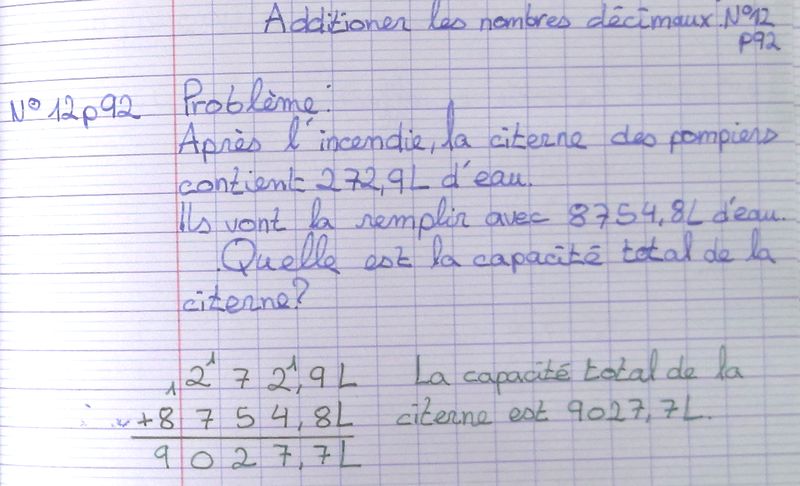 Additioner les nombres décimaux. N°12
p92
N° 12p92 Problème:
Après l'incendie, la citerne des pompiers
contient 272,9L d'eau.
Ils vont la remplir avec 8754,8L d'eau.
Quelle est la capacité total de la
citerne?
1 1
2 7 2,9 L La capacité total de la
1
+8 7 5 4,8L citerne est 9027,7L.
9 0 2 7,7L